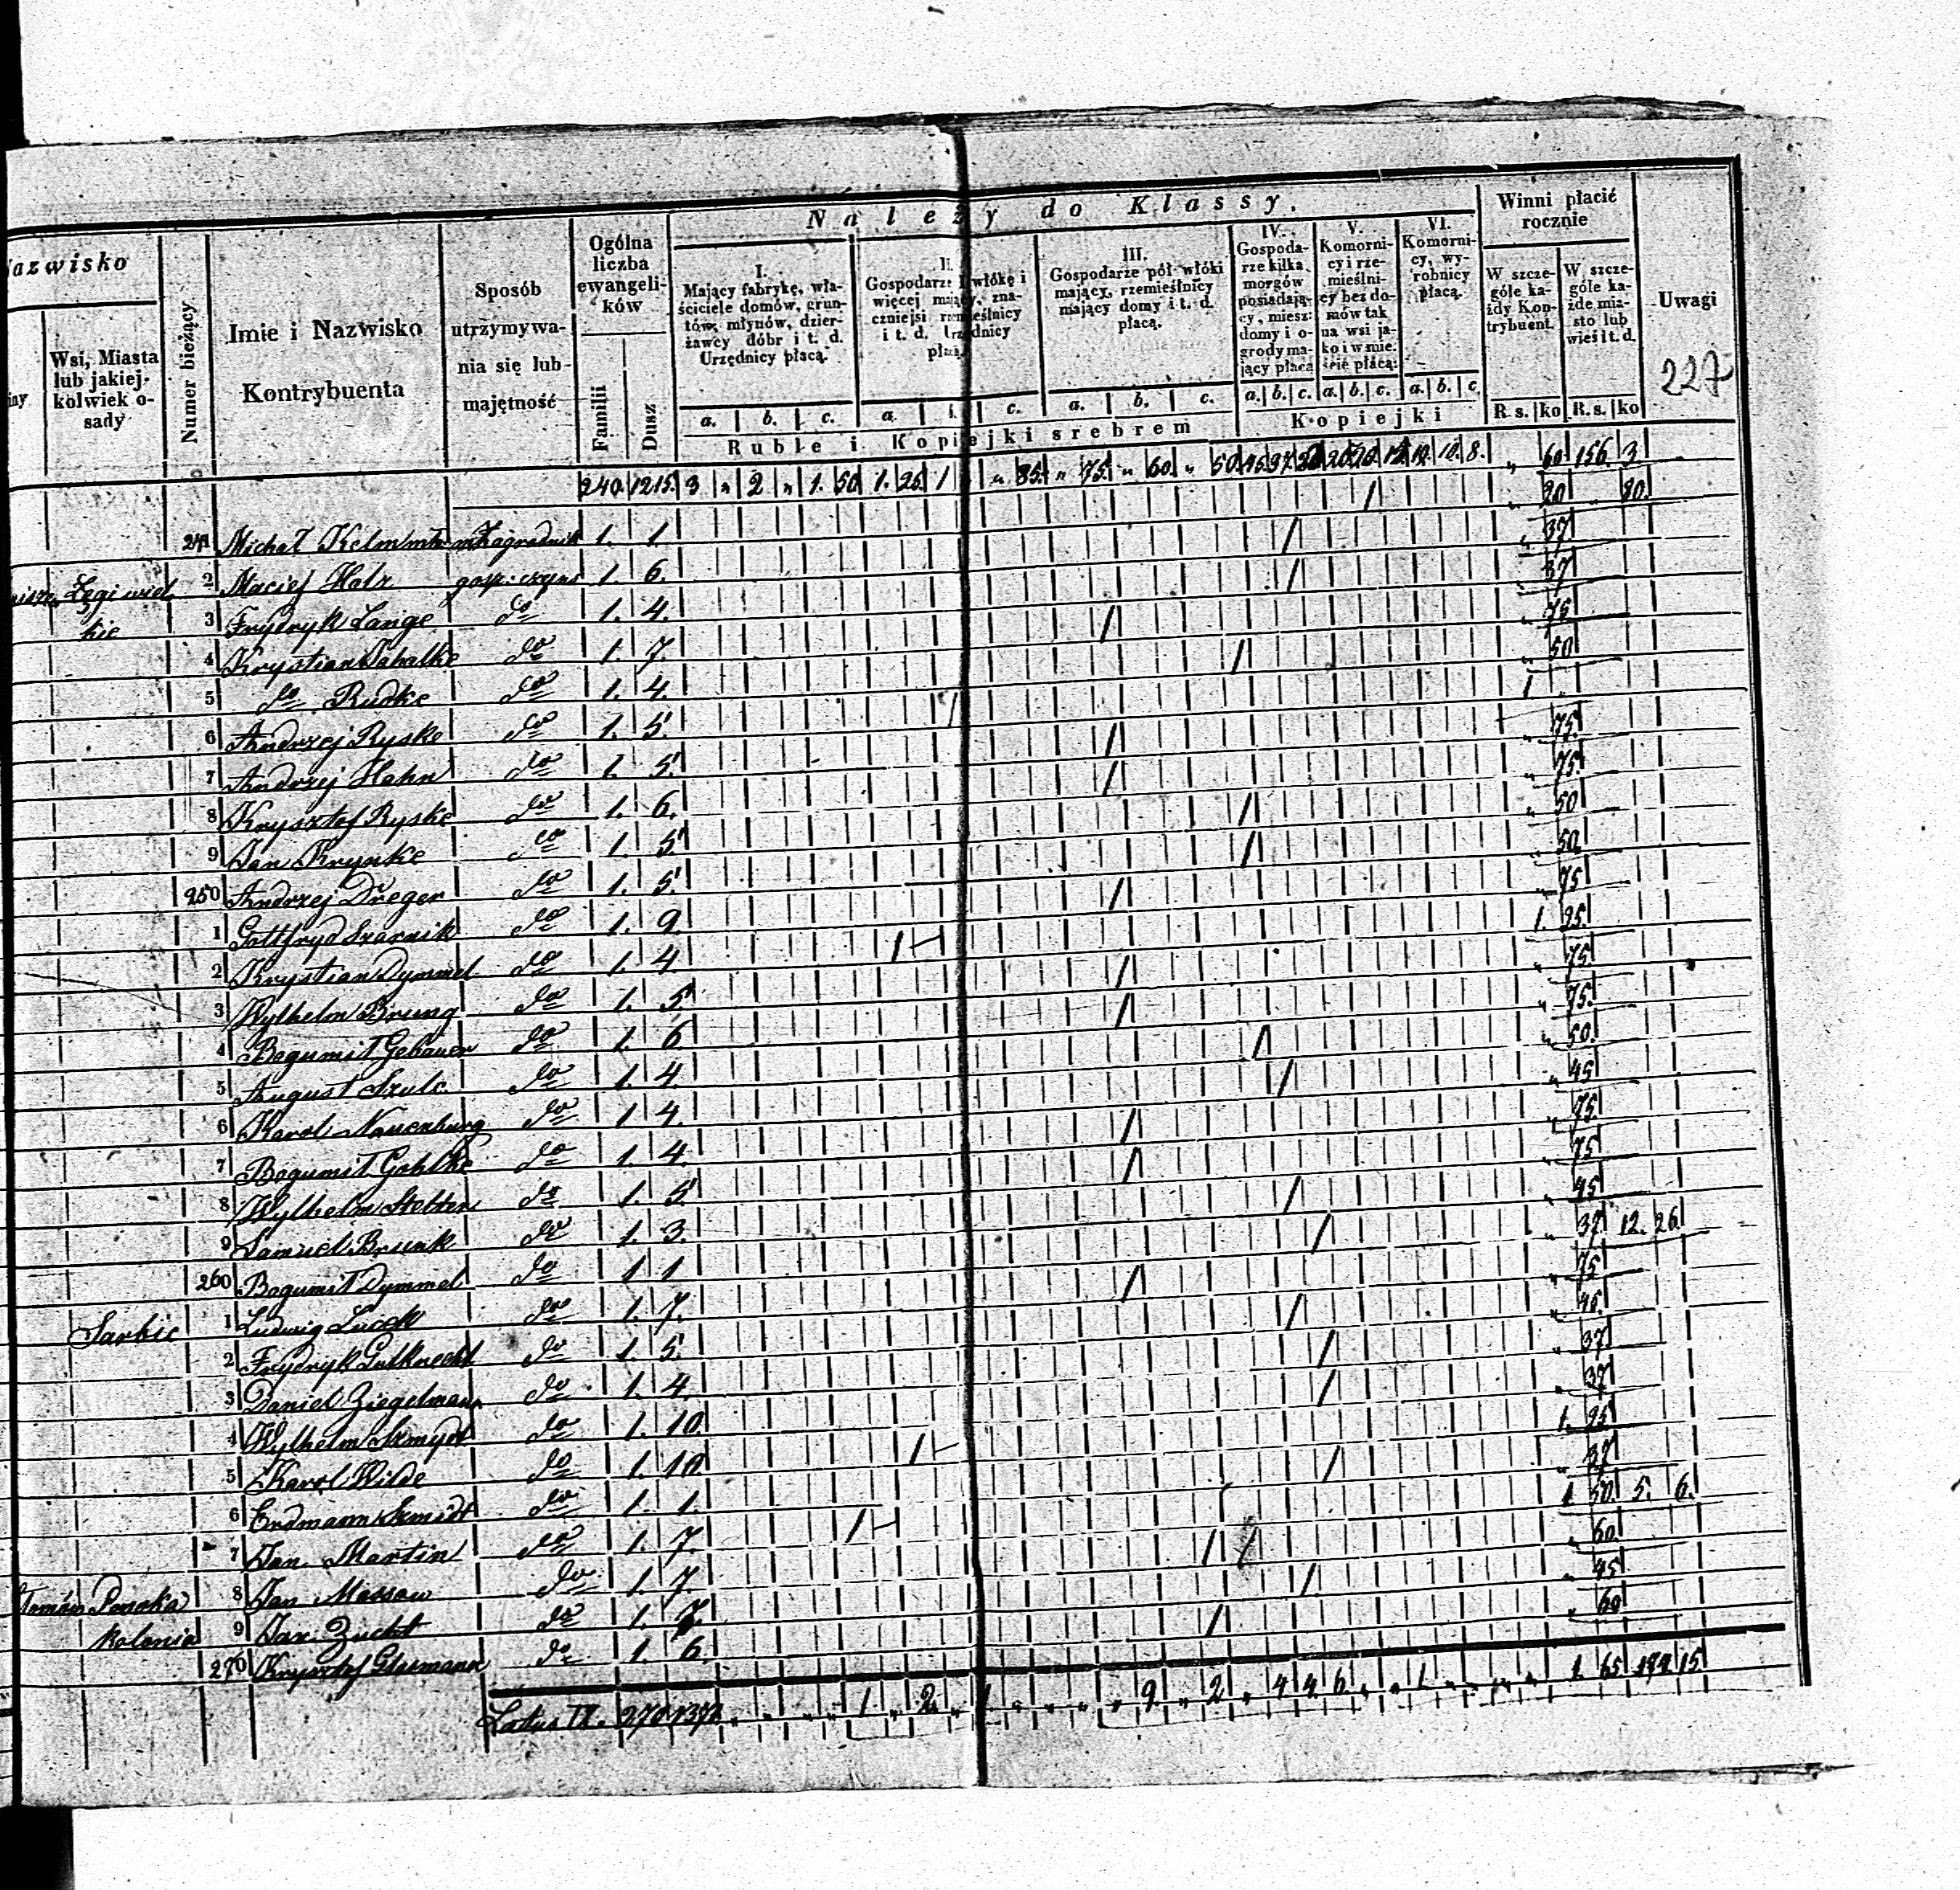 Należy do Klassy.
Winni płacić rocznie
azwisko
iny
Wsi, Miasta lub jakiej- kolwiek o- sady
Numer bieżący
Imie i Nazwisko Kontrybuenta
Sposób utrzymywa- nia się lub majętność
Ogólna liczba ewangeli- ków
Familii
Dusz
I. Mający fabrykę, wła- ściciele domów, grun- tów, młynów, dzier- żawcy dóbr i t. d. Urzędnicy płacą.
II. Gospodarze włókę i więcej mający, zna- czniejsi rzemieślnicy i t. d. Urzędnicy płacą.
III. Gospodarze pół włóki mający, rzemieślnicy mający domy i t. d. płacą.
IV. Gospoda- rze kilka morgów posiadają- cy, miesz: domy i o- grody ma- jący płacą
V. Komorni- cy i rze- mieślni- cy bez do- mów tak na wsi ja- ko i w mie- ście płacą:
VI. Komorni- cy, wy- robnicy płacą.
W szcze- góle ka- żdy Kon- trybuent.
W szcze- góle ka- żde mia- sto lub wieś i t. d.
Uwagi
227
a. b. c. a. b. c. a. b. c. a. b. c. a. b. c. a. b. c.
Ruble i Kopiejki srebrem
Kopiejki
R s. ko R. s. ko
240. 1215. 3 „ 2 „ 1. 50 1. 25. 1 „ 85. „ 75. „ 60. „ 50. „ 60. 156. 3.
241 Michał Kelm 1. 1. / 20 „ 80.
2 Maciej Holz gosp. czyns 1. 6. / „ 37.
Łęgi wiel
kie
3 Frydryk Lange do 1. 4. / 37
4 Krystian do 1. 7. / „ 75.
5 do Rudke do 1. 4. / „ 50
6 Andrzej Ryske do 1. 5. / 1 „
7 Andrzej Hahn do 1. 5. / „ 75.
8 Krysztof Ryske do 1. 6. / „ 75.
9 Jan Krynke do 1. 5. / „ 50
250 Andrzej Dreger do 1. 5. / „ 50.
1 Gottfryd Szarnik do 1. 9. / „ 75
2 Krystian Dymmel do 1. 4. / 1. 25.
3 Wylhelm Brung do 1. 5. / „ 75.
4 Bogumił Gebauer do 1. 6 / „ 75.
5 August Szulc do 1. 4. / „ 50.
6 Karol Nauenburg do 1. 4. / „ 45
7 Bogumił Gohlke do 1. 4. / „ 75.
8 Wylhelm Stebter do 1. 5. / „ 75
9 Samuel Brunk do 1. 3. / „ 45
260 Bogumił Dymmel do 1. 1. / „ 37. 12. 26.
Sarbic
1 Ludwig Lucek do 1. 7. / „ 75
2 Frydryk Gutknecht do 1. 5. / „ 45.
3 Daniel Ziegelmann do 1. 4. / „ 37.
4 Wylhelm Szmydt do 1. 10. / „ 37
5 Karol Wilde do 1. 10 / 1. 25
6 Erdmann Szmidt do 1. 1. / „ 37
7 Jan Martin do 1. 7. / 1 50. 5. 6.
8 Jan Massow do 1. 7. / „ 60.
Kolonia
9 Jan Zucht do 1. 7. / „ 45
270 Krysztof do 1. 6. / „ 60
Latus IX. 270. 1372. 1 2. 1 9 2 4 4 6 1 1. 65 174. 15.